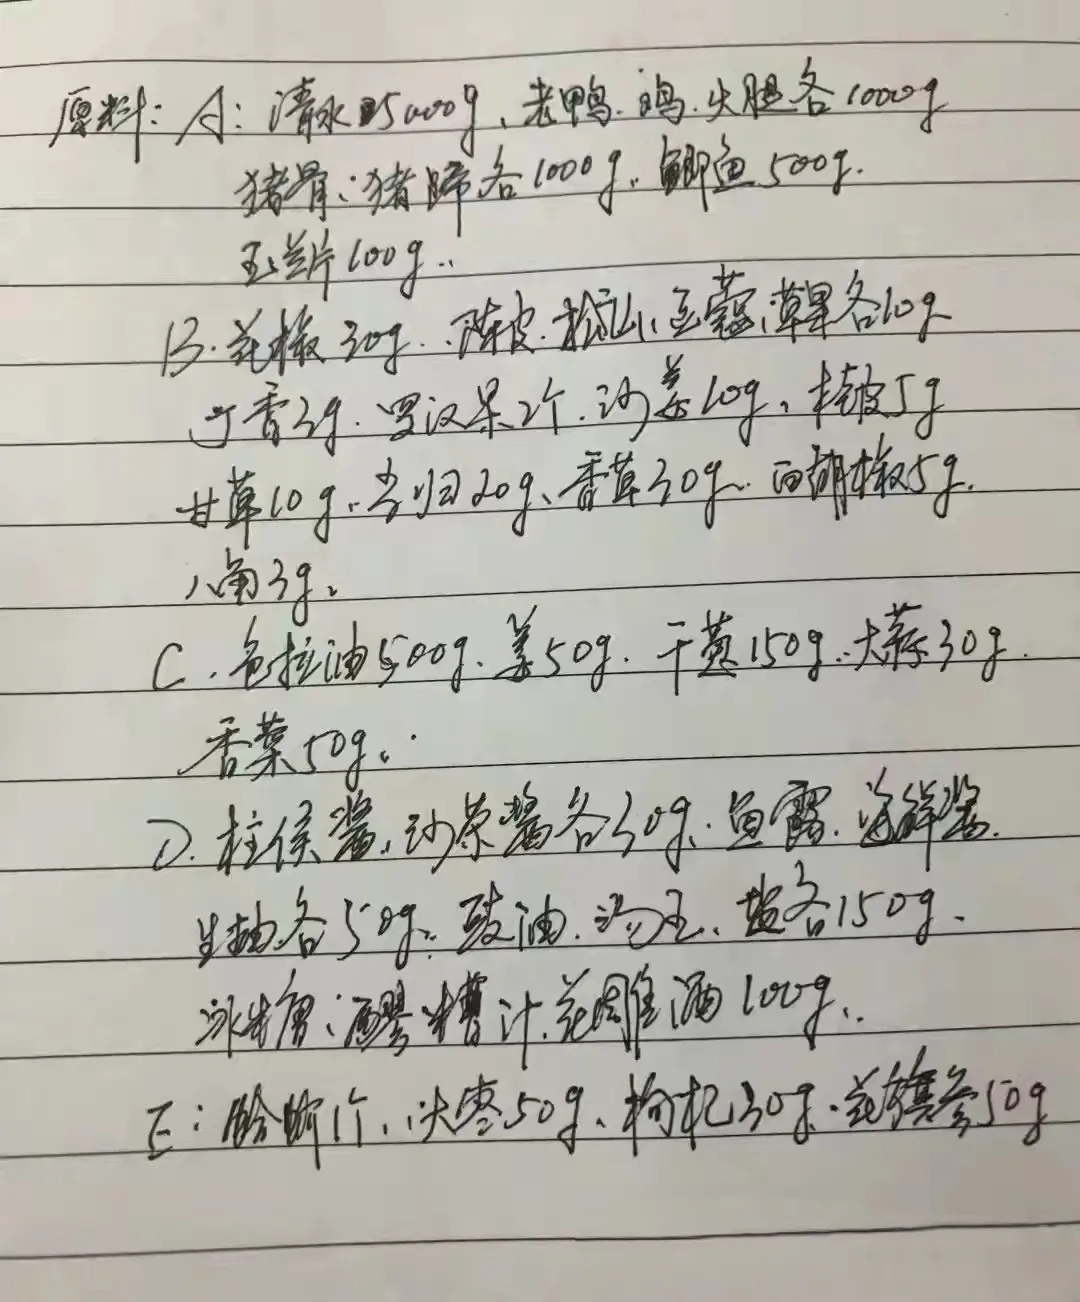 原料: A: 清水5000g、老鸭.鸡.火腿各1000g
猪骨、猪蹄各1000g、鲫鱼500g.
玉兰片100g..
B.花椒30g..陈皮.豆蔻、草果各10g
丁香3g.罗汉果2个.沙姜10g、桂皮5g
甘草10g、当归20g、香草30g.白胡椒5g.
八角3g、
C.色拉油500g、姜50g.干葱150g、大蒜30g.
香菜50g、
D.柱侯酱、沙茶酱各30g、鱼露.海鲜酱.
生抽各50g、豉油.汤王、盐各150g.
冰糖、醪糟汁.花雕酒100g、
E:蛤蚧1个、大枣50g、枸杞30g、花旗参50g